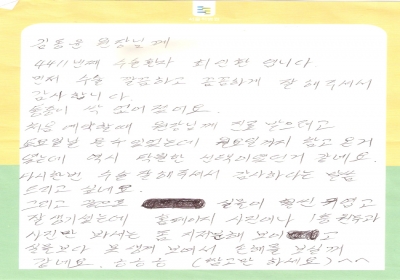 김동윤 원장님께
4411번째 수술환자 최선환 입니다.
먼저 수술 깔끔하고 꼼꼼하게 잘 해주셔서
감사합니다.
통증이 싹 없어졌네요.
처음 예약할때 원장님께 진료 받으려고
토요일날 올수 있었는데 월요일까지 참고 온거
같은데 역시 탁월한 선택이었던거 같네요.
다시한번 수술 잘 해주셔서 감사하다는 말씀
드리고 싶네요.
그리고 실물이 훨씬 귀엽고
잘 생기셨는데 홈페이지 사진이나 1층 원무과
사진만 봐서는 좀 시작만해 보이고
실물보다 못 생겨 보여서 손해를 보실거
같네요. ㅎㅎㅎ (참고만 하세요) ^^